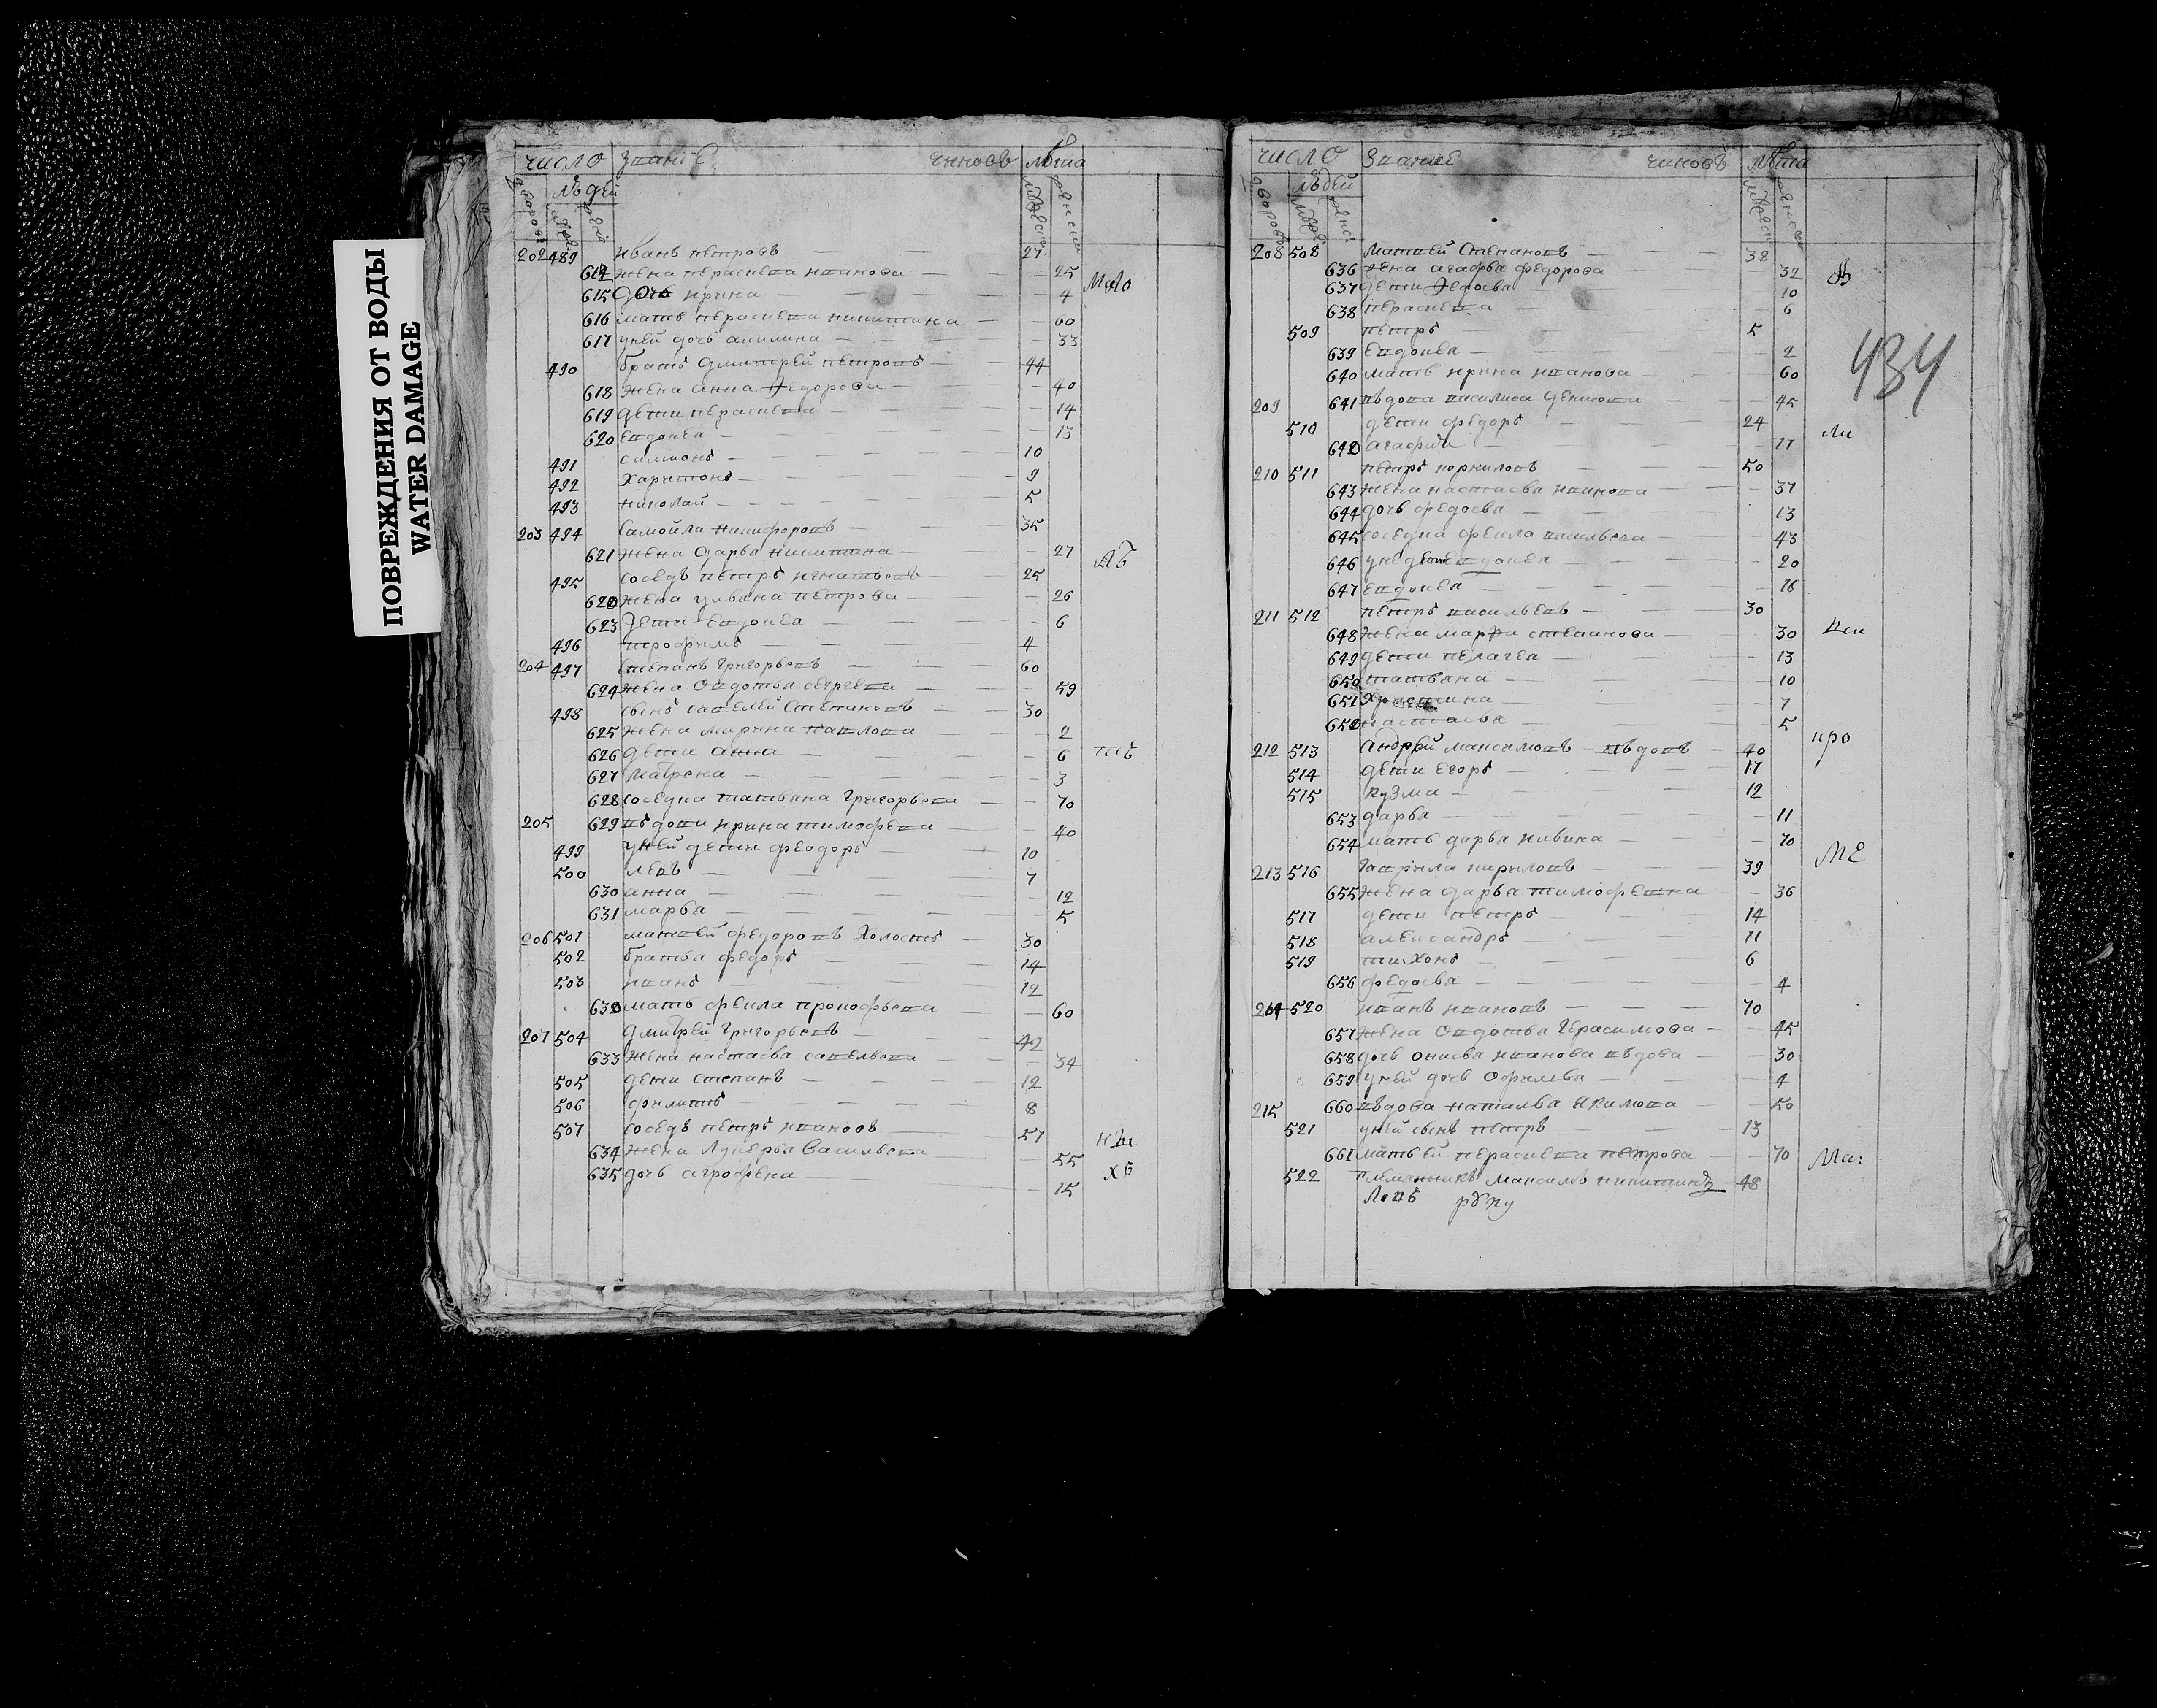 ПОВРЕЖДЕНИЯ ОТ ВОДЫ
WATER DAMAGE
число званіе чиновъ лѣта
дворовъ людей
202 489 иванъ петровъ 27
614 жена парасковя иванова 25
615 дочь ирина 4
616 мать парасковя никитина 60
617 уней дочь акилина 33
490 братъ дмитрей петровъ 44
618 жена анна федорова 40
619 дети парасковя 14
620 евдокея 13
491 симионъ 10
492 харитонъ 9
493 николай 5
203 494 самойла никифоровъ 35
621 жена дарья никитина 27
495 соседъ петръ игнатьевъ 25
622 жена ульяна петрова 26
623 дети евдокея 6
496 трофимъ 4
204 497 степанъ григорьевъ 60
624 жена овдотья сергева 59
498 сынъ савелей степановъ 30
625 жена марина павлова 2
626 дети анна 6
627 матрена 3
628 соседка татьяна григорьева 70
205 629 вдова ирина тимофева 40
499 уней дети феодоръ 10
500 левъ 7
630 анна 12
631 марья 5
206 501 матвей федоровъ холостъ 30
502 братья федоръ 14
503 иванъ 12
632 мать фекла прокофьева 60
207 504 дмитрей григорьевъ 42
633 жена настасья савельева 34
505 дети степанъ 12
506 филипъ 8
507 соседъ петръ ивановъ 57
634 жена лукерья васильева 55
635 дочь агрофена 15
число званіе чиновъ лѣта
дворовъ людей
208 508 матвей степановъ 38
636 жена агафья федорова 32
637 дети федосья 10
638 парасковя 6
509 петръ 5
639 евдокея 2
640 мать ирина иванова 60
434
209 641 вдова василиса денисова 45
510 дети федоръ 24
642 агафия 17
210 511 петръ корниловъ 50
643 жена настасья иванова 37
644 дочь федосья 13
645 соседка фекла васильева 43
646 унеи дети евдокея 20
647 евдокея 16
211 512 петръ васильевъ 30
648 жена марфа степанова 30
649 дети пелагея 13
650 татьяна 10
651 христина 7
652 настасья 5
212 513 андрей максимовъ вдовъ 40
514 дети егоръ 17
515 кузма 12
653 дарья 11
654 мать дарья ильина 70
213 516 гаврила кириловъ 39
655 жена дарья тимофевна 36
517 дети петръ 14
518 александръ 11
519 тихонъ 6
656 федосья 4
214 520 иванъ ивановъ 70
657 жена овдотья герасимова 45
658 дочь онисья иванова вдова 30
659 уней дочь офимья 4
215 660 вдова наталья якимова 50
521 уней сынъ петръ 13
661 мать ей парасковя петрова 70
522 племянникъ максимъ никитинъ 48
руку